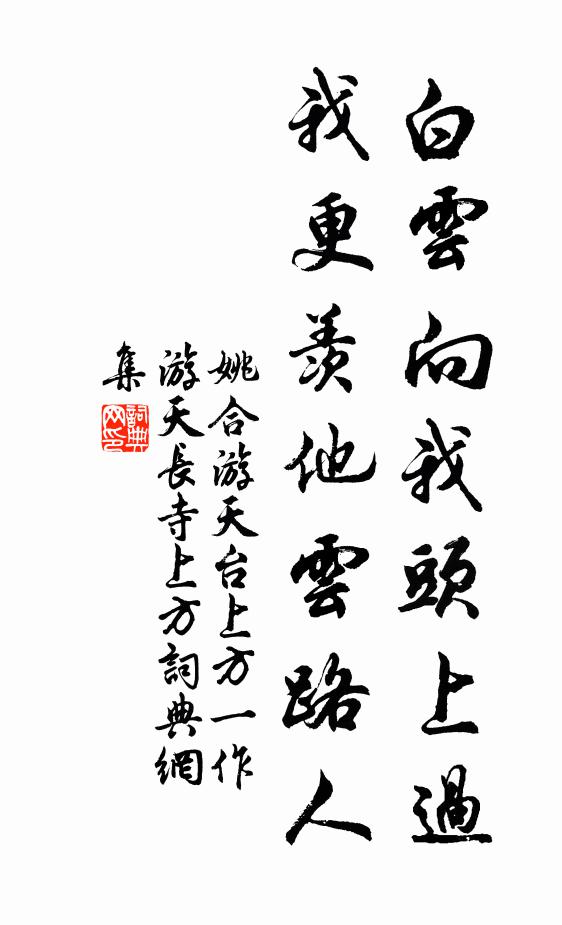 白雲向我頭上過
我更羨他雲路人
姚合游天台上方一作
游天長寺上方詞典網
集
詞典网印